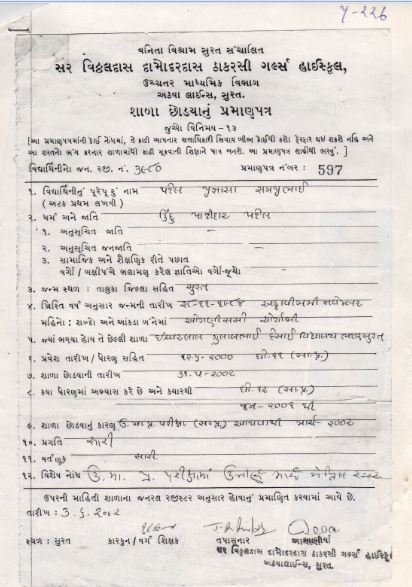 ૫-૨૨૬
વનિતા વિશ્રામ સુરત સંચાલિત
સર વિઠ્ઠલદાસ દામોદરદાસ ઠાકરસી ગર્લ્સ હાઈસ્કૂલ,
ઉચ્ચતર માધ્યમિક વિભાગ
અઠવા લાઈન્સ, સુરત.
શાળા છોડયાનું પ્રમાણપત્ર
જુઓ વિનિમય - ૧૩
[આ પ્રમાણપત્રમાંની કોઈ નોંધમાં, તે કાઢી આપનાર સત્તાધિકારી સિવાય બીજા કોઈથી કશો ફેરફાર થઈ શકશે નહિ અને
આ શરતનો ભંગ કરનાર શાળામાંથી કાઢી મૂકવાની શિક્ષાને પાત્ર બનશે. આ પ્રમાણપત્ર શાહીથી ભરવું.]
વિદ્યાર્થિનીનો જન. રજી. નં. ૩૯૮૦ પ્રમાણપત્ર નંબર : 597
૧. વિદ્યાર્થિનીનું પૂરેપૂરૂં નામ પટેલ
(અટક પ્રથમ લખવી)
૨. ધર્મ અને જાતિ હિંદુ પાટીદાર પટેલ
૧. અનુસૂચિત જાતિ —
૨. અનુસૂચિત જનજાતિ —
૩. સામાજિક અને શૈક્ષણિક રીતે પછાત
વર્ગો / બક્ષીપંચે ભલામણ કરેલ જ્ઞાતિઓ વર્ગો-જૂથો —
૩. જન્મ સ્થળ : તાલુકા જિલ્લા સહિત સુરત
૪. ખ્રિસ્તિ વર્ષ અનુસાર જન્મની તારીખ ૨૮-૧૧-૧૯૮૪ અઠ્ઠાવીસમી નવેમ્બર
મહિનો : શબ્દો અને આંકડા બંનેમાં ઓગણીસસો ચોર્યાસી
૫. જ્યાં ભણ્યા હોય તે છેલ્લી શાળા ગુલાબભાઈ દેસાઈ વિદ્યાલય
૬. પ્રવેશ તારીખ / ધોરણ સહિત ૧૨-૬-૨૦૦૦ ધો.૧૧ (સા.પ્ર.)
૭. શાળા છોડયાની તારીખ ૩૧-૫-૨૦૦૨
૮. કયા ધોરણમાં અભ્યાસ કરે છે અને કયારથી ધો.૧૨ (સા.પ્ર.)
જૂન-૨૦૦૧ થી
૯. શાળા છોડયાનું કારણ ઉ.મા.પ્ર. પરીક્ષા (સા.પ્ર.) આપવાથી માર્ચ-૨૦૦૨
૧૦. પ્રગતિ સારી
૧૧. વર્તણુંક સારી
૧૨. વિશેષ નોંધ ઉ. મા. પ્ર. પરીક્ષામાં ઉત્તીર્ણ માર્ચ ૨૦૦૨
ઉપરની માહિતી શાળાના જનરલ રજીસ્ટર અનુસાર હોવાનું પ્રમાણિત કરવામાં આવે છે.
તારીખ : ૩.૬.૨૦૦૨
સ્થળ : સુરત કારકુન / વર્ગ શિક્ષક તપાસનાર આચાર્યા
સર વિઠ્ઠલદાસ દામોદરદાસ ઠાકરસી ગર્લ્સ હાઈસ્કૂલ
અઠવાલાઈન્સ, સુરત.